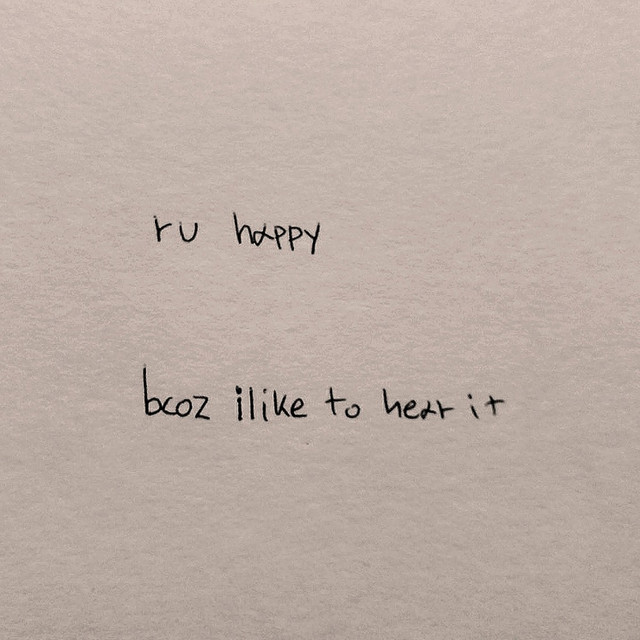 r u happy
bcoz ilike to hear it